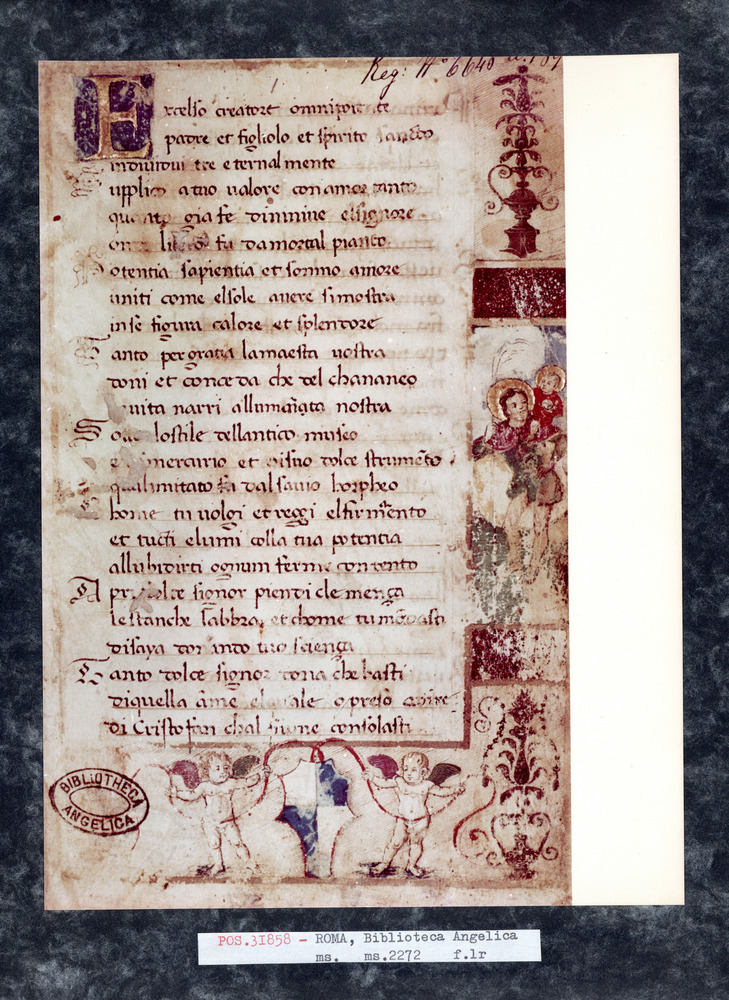 Reg: Nº 6640
Excelso creatore omnipotente
padre et figliolo et spirito sancto
individui tre eternalmente
Supplico a tuo valore con amor tanto
quanto gia fe dimmine elsignore
fu da mortal pianto
Potentia sapientia et sommo amore
uniti come elsole avere si mostra
in se figura calore et splendore
Tanto per gratia lamaesta vostra
doni et conceda che del chananeo
vita narri allumanata nostra
lostile dellantico museo
mercurio et disuo dolce strumēto
qual imitato fu dal savio horpheo
home tu volgi et reggi elfirmēto
et tucti elumi colla tua potentia
allubidirti ognum ferme contento
A pri dolce signor pien di clemença
le stanche labbra, et chome tu
disaya tuo sciença
Tanto dolce signor dona che basti
diquella
di Cristofan chal consolasti
BIBLIOTHECA
ANGELICA
POS.31858 - ROMA, Biblioteca Angelica
ms. ms.2272 f.1r